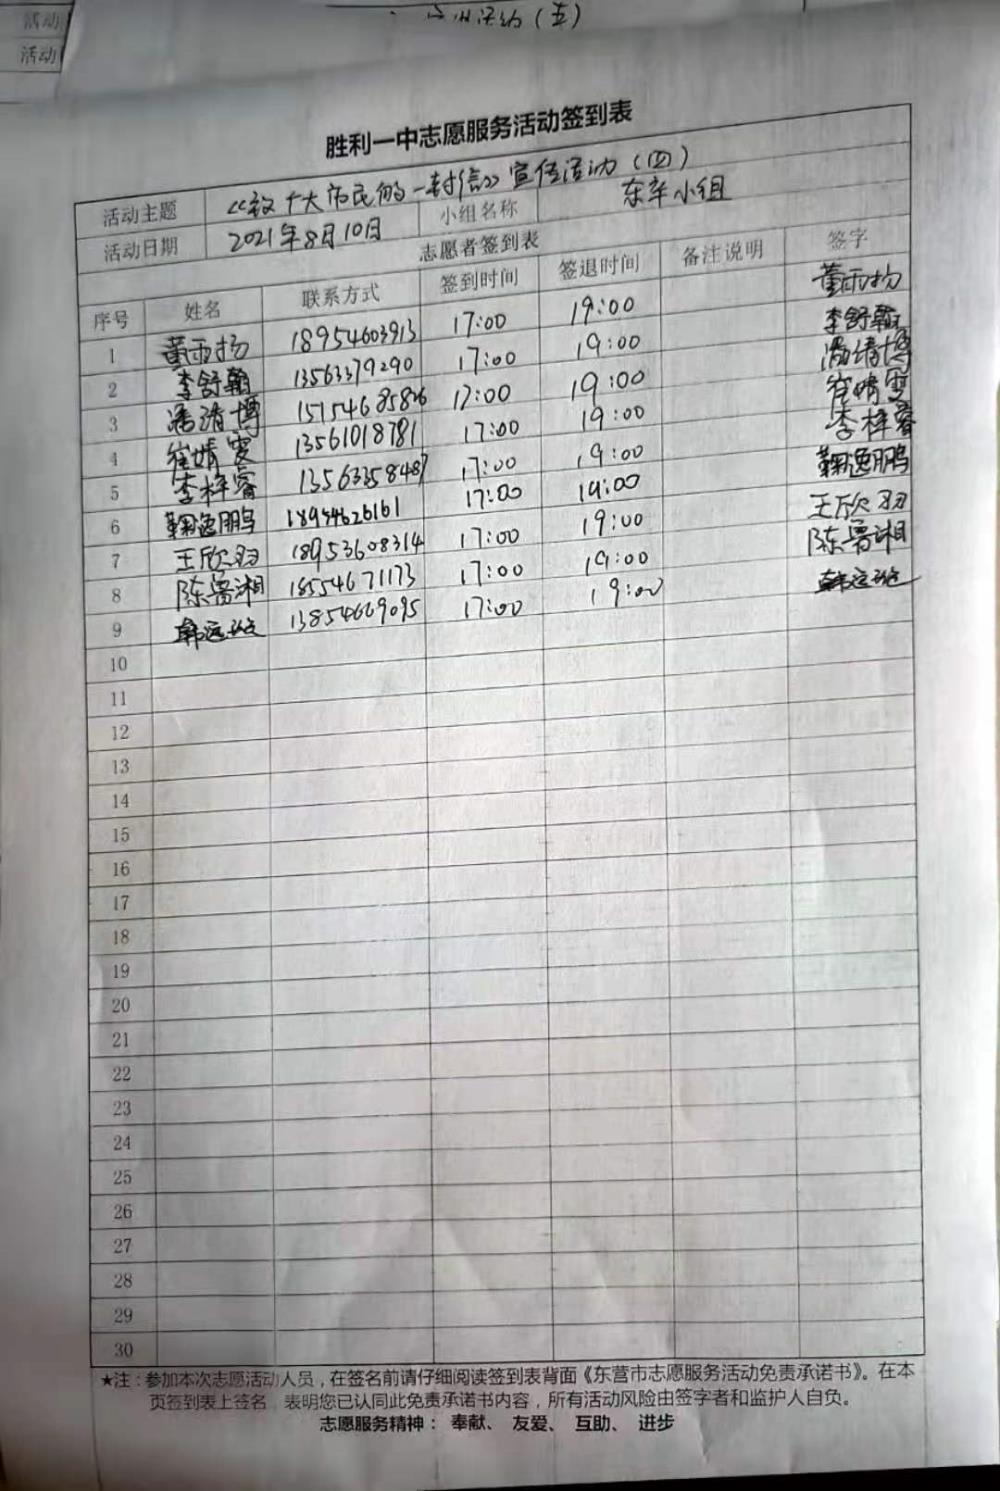 活动
活动
活动(五)
胜利一中志愿服务活动签到表
活动主题 《致广大市民的一封信》宣传活动(四)
活动日期 2021年8月10日 小组名称 东辛小组
志愿者签到表
序号 姓名 联系方式 签到时间 签退时间 备注说明 签字
1 董雨扬 18954603913 17:00 19:00 董雨扬
2 李舒翰 13563379290 17:00 19:00 李舒翰
3 潘清博 17:00 19:00 潘清博
4 崔婧雯 13561018781 17:00 19:00 崔婧雯
5 李梓睿 13563358487 17:00 19:00 李梓睿
6 鞠逸鹏 18954626161 17:00 19:00 鞠逸鹏
7 王欣羽 18953608314 17:00 19:00 王欣羽
8 陈鲁湘 18554671173 17:00 19:00 陈鲁湘
9 13854669095 17:00 19:00
10
11
12
13
14
15
16
17
18
19
20
21
22
23
24
25
26
27
28
29
30
★注:参加本次志愿活动人员,在签名前请仔细阅读签到表背面《东营市志愿服务活动免责承诺书》。在本
页签到表上签名,表明您已认同此免责承诺书内容,所有活动风险由签字者和监护人自负。
志愿服务精神: 奉献、 友爱、 互助、 进步